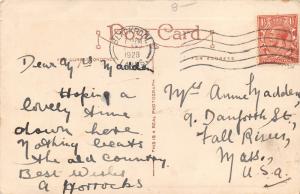 8-
Post Card
1928
FOR ADDRESS
Dear Mrs Madden
Hoping a
lovely time
down here.
Nothing beats
the old country.
Best Wishes
A Horrocks
THIS IS A REAL PHOTOGRAPH
Mrs Annie Madden
9. Danforth St.,
Fall River,
Mass,
U.S.A.